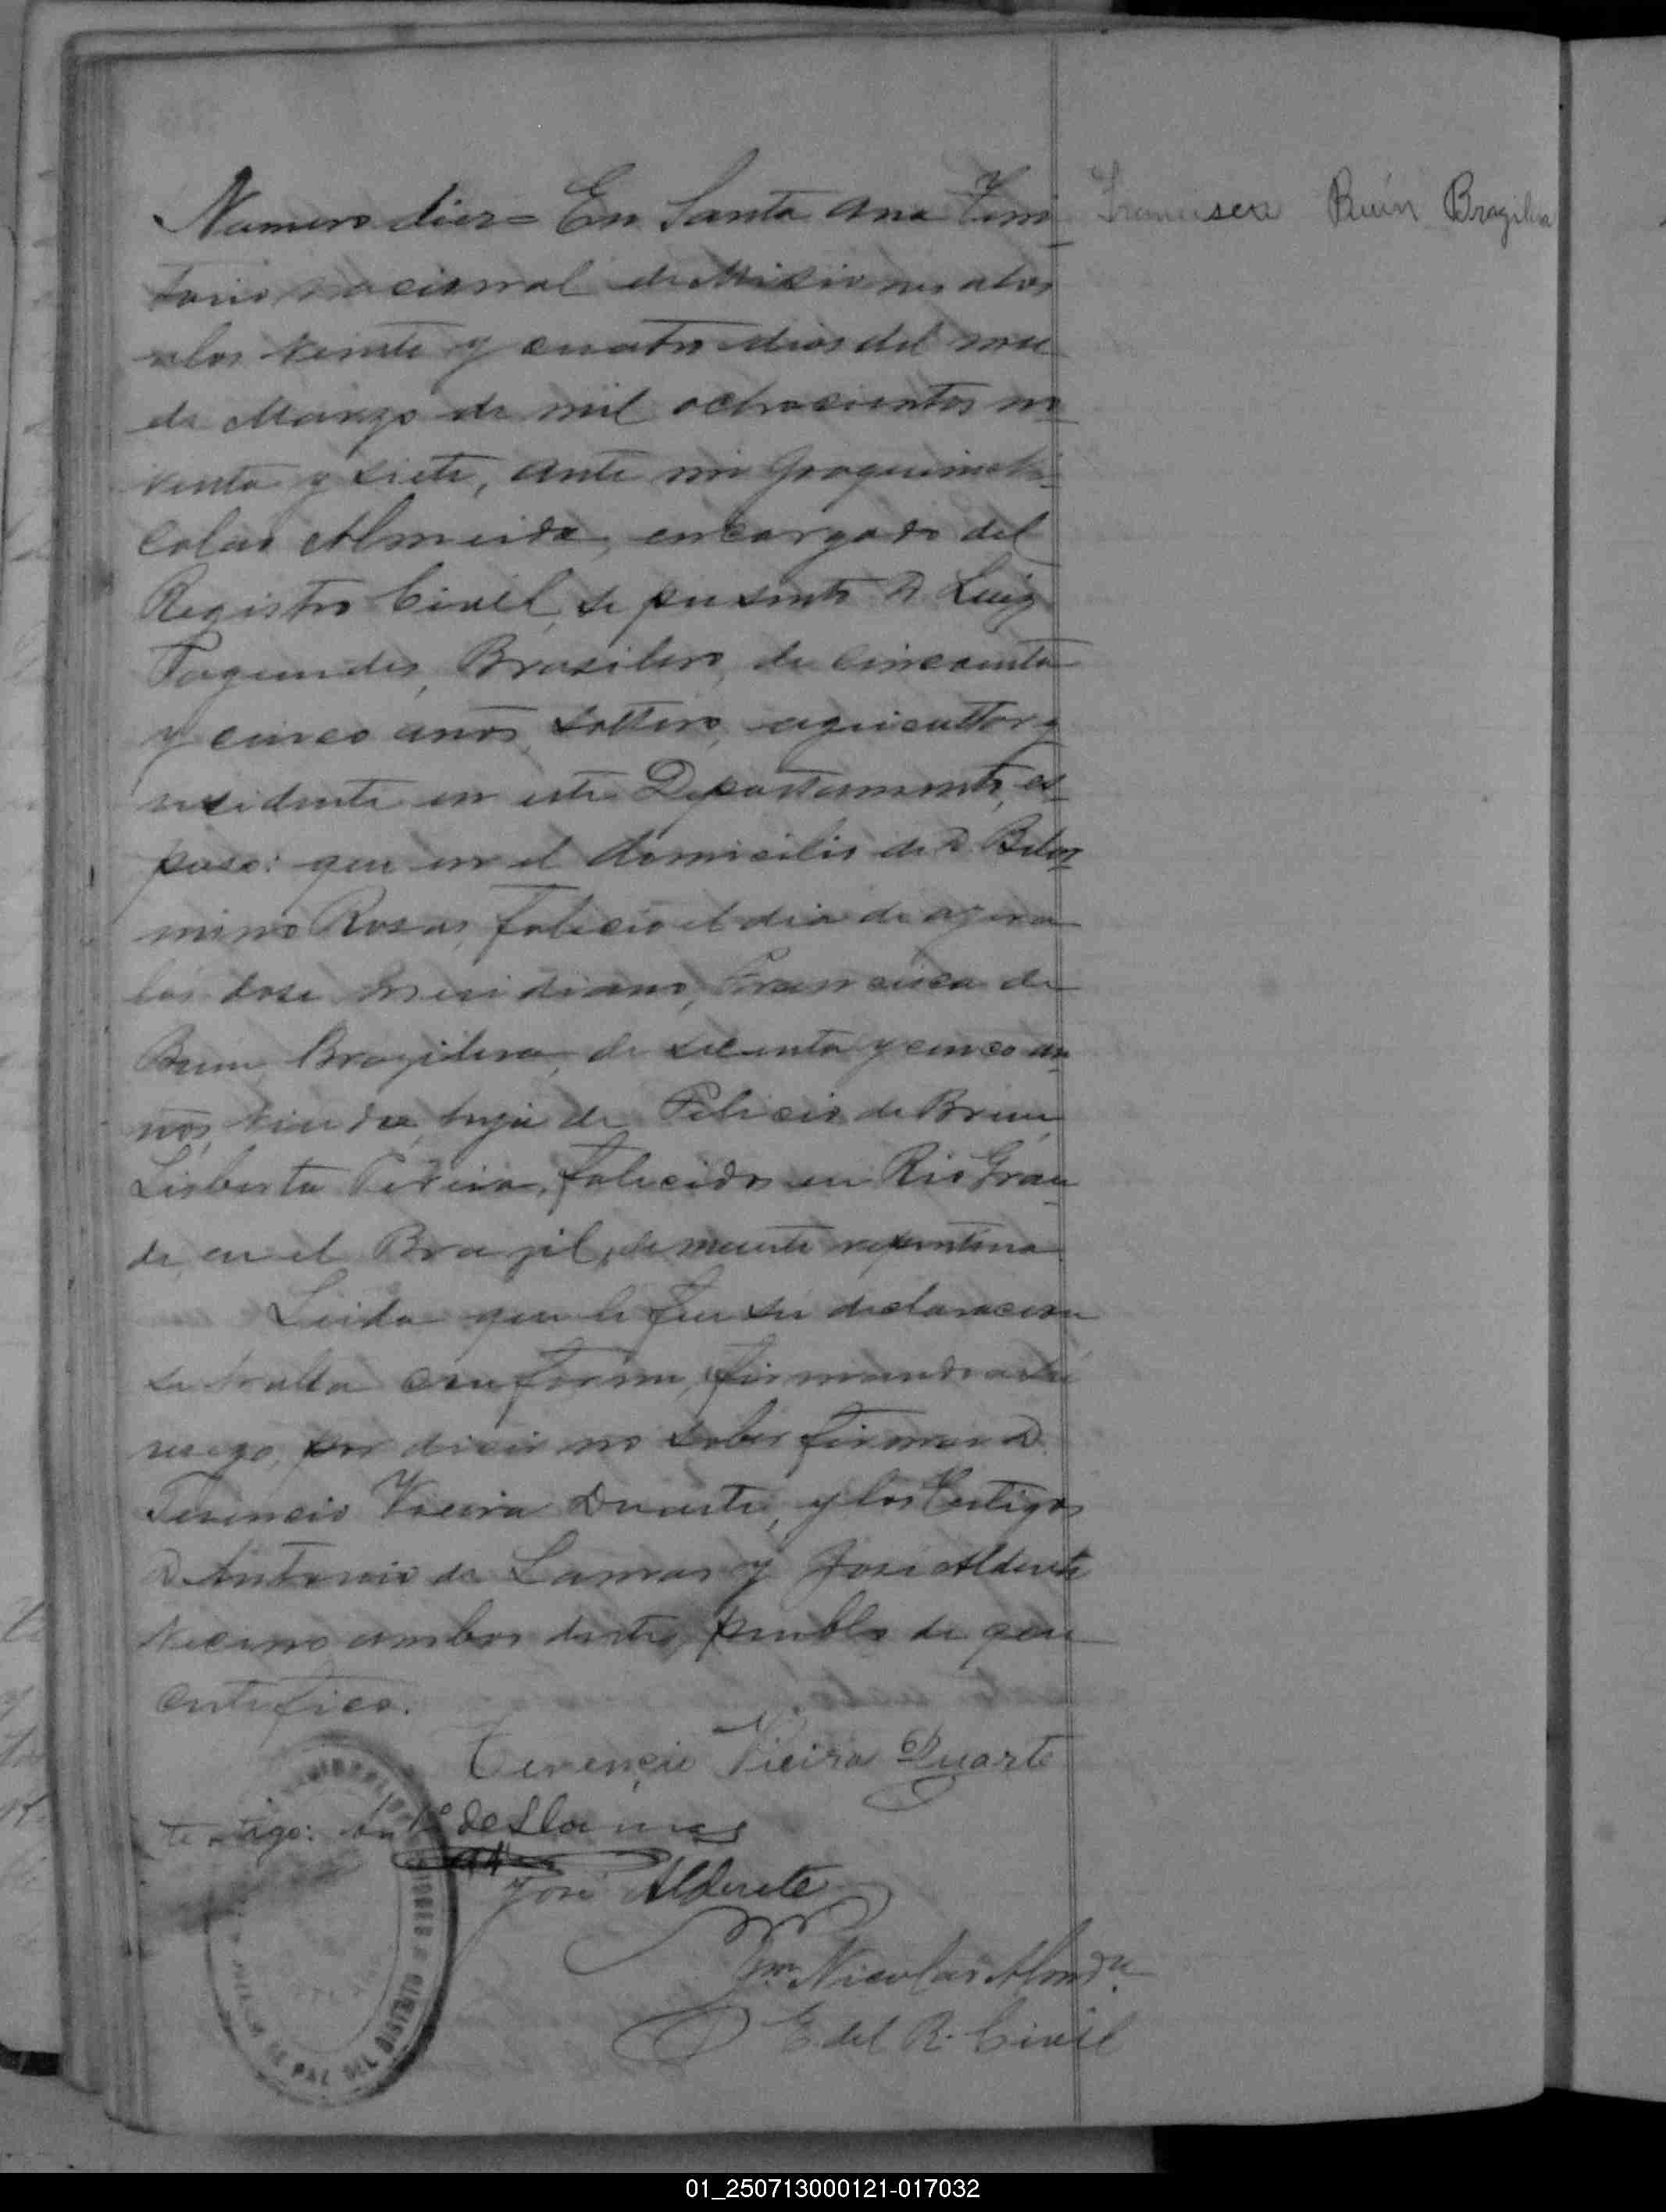 Numero diez= En Santa Ana Terri
torio nacional de Misiones a los
a los veinte y cuatro dias del mes
de Marzo de mil ochocientos no
venta y siete, ante mi Joaquin Ni
colas Almeida, encargado del
Registro Civil, se presento D Luiz
Fagundes, Brasilero, de cincuenta
y cinco años, soltero, agricultor y
residente en este Departamento, es
puso: que en el domicilio de D Belar
mino Rosas, falecio el dia de ayer a
las dose meridiano, Francisca de
Brum, Brazilera, de secenta y cinco an
nos, viuda, hija de Felicio de Brum
Lisberta Pereira, falecidos en Rio Gran
de, en el Brazil, de muerte repentina
Leida que le fue su declaracion
se halla conforme, firmando a su
ruego, por decir no saber firmar D.
Terencio Vieira Duarte, y los testigos
D Antonio de Lamas y José Alderete
vecinos ambos deste pueblo de que
certifico.
Terencio Vieira Duarte
testigo: Anto de Llamas
José Alderete
Jm Nicolas Almda
E del R. Civil
DE PAZ DEL DISTRITO
Francisca Bruin Brazilera
01_250713000121-017032